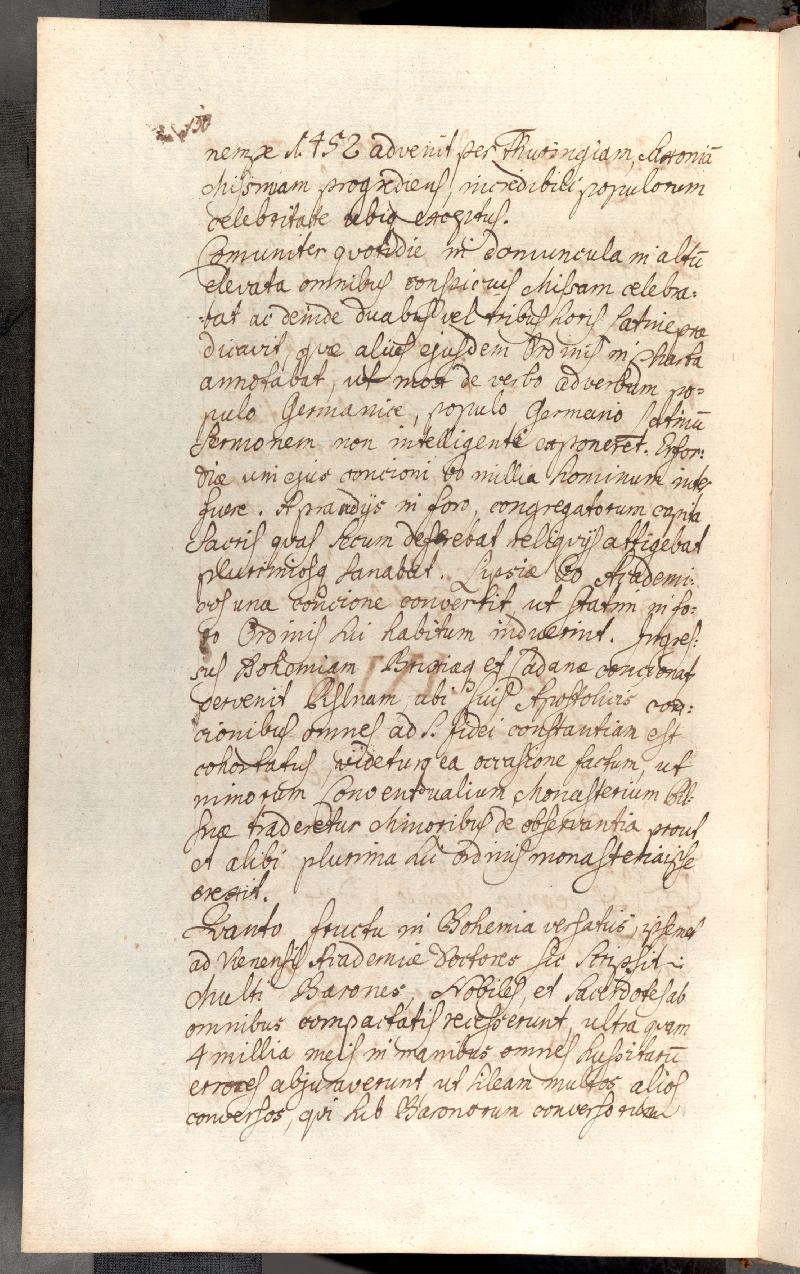 nempe 1452 advenit per Thuringiam, Saxoniã
Misniam progrediens, incredibili populorum
celebritate ubiq exceptus.
Comuniter quotidie in domuncula in altũ
elevata omnibus conspicuis Missam celebra:
bat ac deinde duabus vel tribus horis latine præ
dicavit, quæ alius ejusdem Ordinis in Charta
annotabat, ut mox de verbo ad verbum po=
pulo Germanice, populo Germano Latinũ
Sermonem non intelligente exponeret. Erfor:
diæ uni ejus concioni 60 millia hominum inter
fuere. A prandijs in foro, congregatorum capita
Sacris quas secum deferebat reliquijs attigebat
plurimosq sanabat. Lipsiæ 60 Academi:
cos una concione convertit, ut statim in fo:
ro Ordinis sui habitum induerint. Ingres:
sus Bohemiam Bruxiæq et Cadanæ concionat
pervenit Pilsnam, ubi suis Apostolicis con:
cionibus omnes ad S. fidei constantiam est
cohortatus, videturq ea occasione factum, ut
minorum Conventualium Monasterium Pil:
snæ traderetur Minoribus de observantia, prout
et alibi plurima sui ordinis monasteria ipse
erexit.
Quanto fructu in Bohemia versatus, ipsemet
ad Vienensis Academiæ Doctores sic scripsit:
Multi Barones, Nobiles, et Sacerdotes ab
omnibus compactatis recesserunt, ultra quam
4 millia meis in manibus omnes hussitarũ
errores abjuraverunt ut sileam multos alios
conversos, qui sub Baronorum conversorum